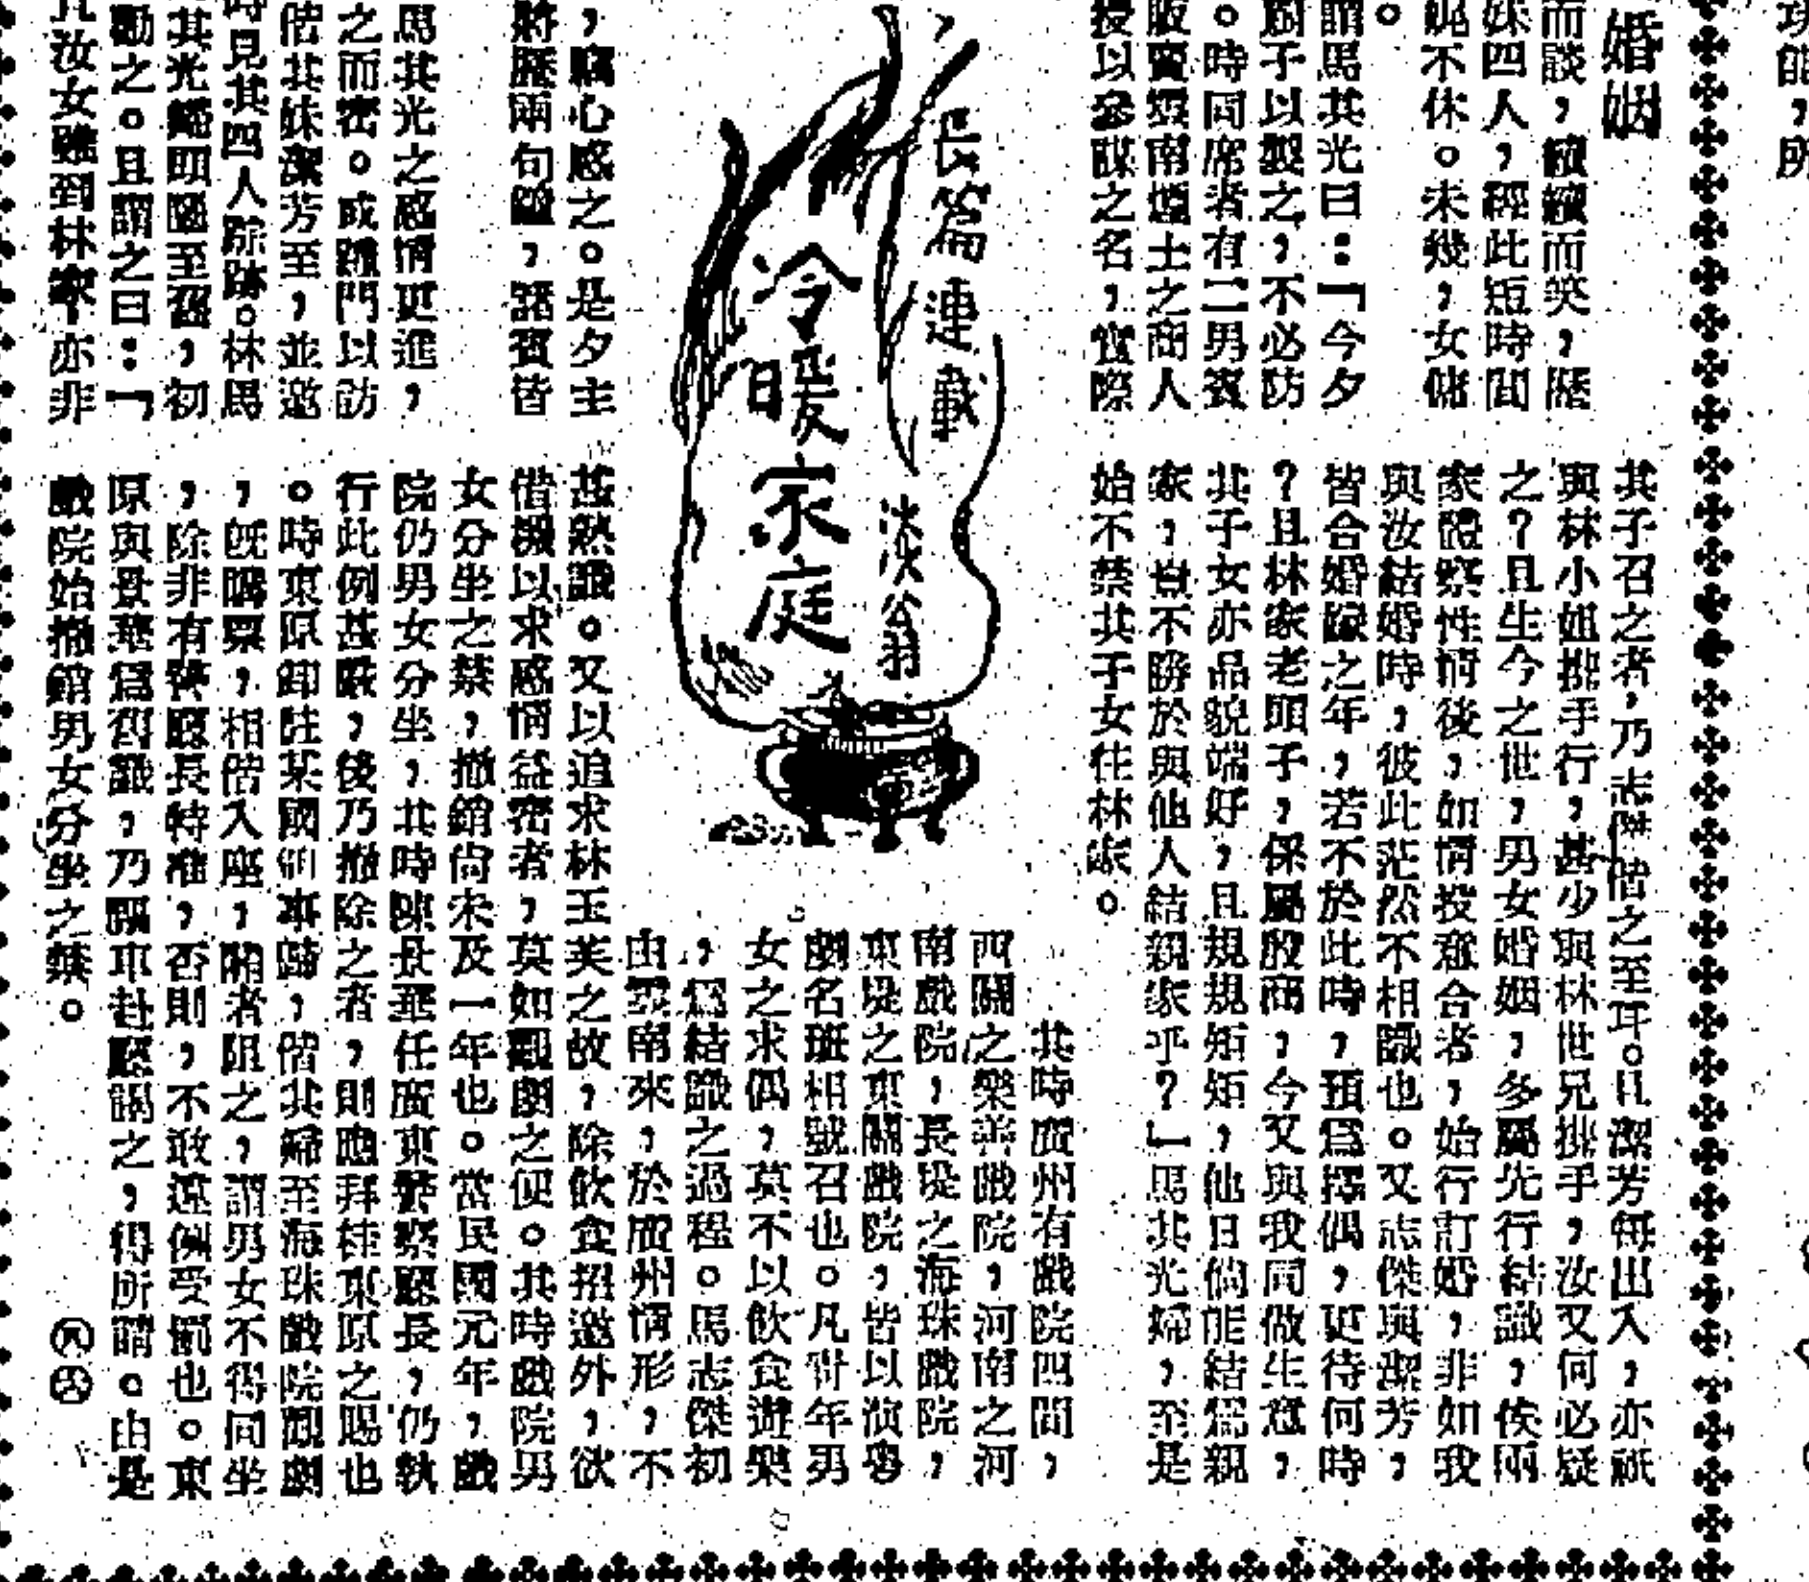 婚姻
而談，續續而笑，歷
妹四人，經此短時間
不休。未幾，女傭
。
謂馬其光曰：「今夕
廚子以製之，不必防
。時同席者有二男賓
販賣雲南煙土之商人
授以參謀之名，實際
長篇連載
冷暖家庭
淡公
，竊心感之。是夕主
將歷兩句鐘，諸賓皆
馬其光之感情更進，
之而密。或踵門以訪
偕其妹潔芳至，並邀
時見其四人踪跡。林馬
其光歸明區至舊，初
勸之。且謂之曰：「
汝女雖到林家，亦非
其子召之者，乃志傑偕之至耳。且潔芳每出入，亦祇
與林小姐携手行，甚少與林世兄携手，汝又何必疑
之？且生今之世，男女婚姻，多屬先行結識，俟兩
家體察性情後，如情投意合者，始行訂婚，非如我
與汝結婚時，彼此茫然不相識也。又志傑與潔芳，
皆合婚嫁之年，若不於此時，預爲擇偶，更待何時
？且林家老頭子，係屬殷商，今又與我同做生意，
其子女亦品貌端好，且規規矩矩，他日倘能結爲親
家，豈不勝於與他人結親家乎？」馬其光婦，至是
始不禁其子女往林家。
其時廣州有戲院四間，
西關之樂善戲院，河南之河
南戲院，長堤之海珠戲院，
東堤之東關戲院，皆以演粵
劇名班相號召也。凡靑年男
女之求偶，莫不以飲食遊樂
，爲結識之過程。馬志傑初
由雲南來，於廣州情形，不
甚熟識。又以追求林玉芙之故，除飲食招邀外，欲
借機以求感情益密者，莫如觀劇之便。其時戲院男
女分坐之禁，撤銷尙未及一年也。當民國元年，戲
院仍男女分坐，其時陳景華任廣東警察廳長，仍執
行此例甚嚴，後乃撤除之者，則應拜桂東原之賜也
。時東原卸駐某國領事歸，偕其婦至海珠戲院觀劇
，旣購票，相偕入座，閽者阻之，謂男女不得同坐
，除非有警廳長特准，否則，不敢違例受罰也。東
原與景華爲舊識，乃驅車赴廳謁之，得所請。由是
戲院始撤銷男女分坐之禁。